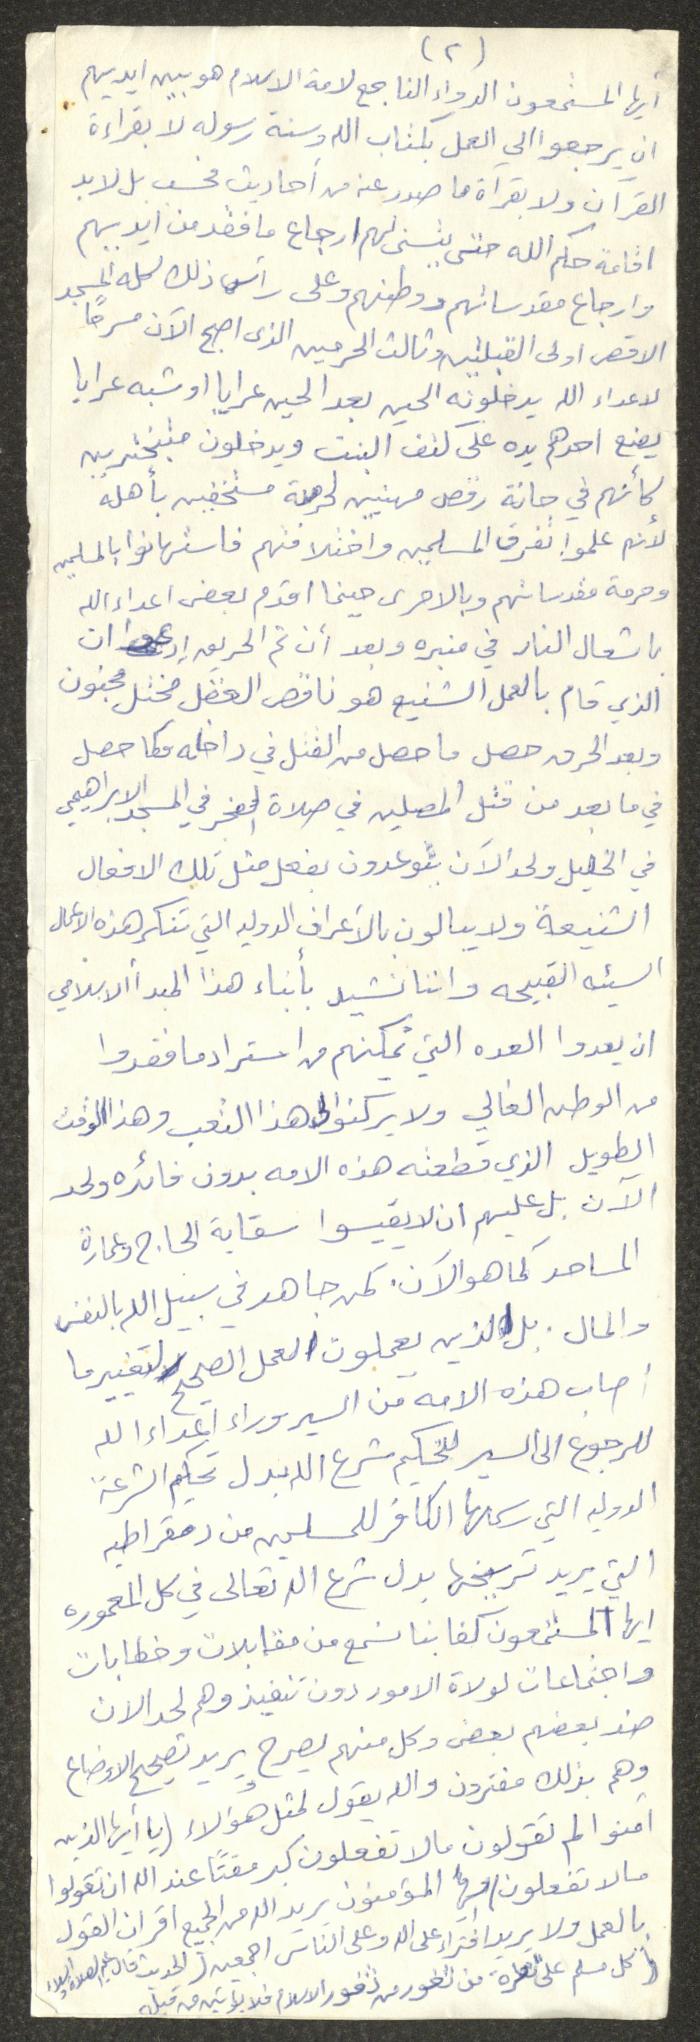 (٢)
أيها المستمعون الدواء الناجع لامة الاسلام هو بين ايديهم
ان يرجعوا الى العمل بكتاب الله وسنة رسوله لا بقراءة
القرآن ولا بقرآة ما صدر عنه من أحاديث فحسب بل لابد
اقامة حكم الله حتى يتسنى لهم ارجاع ما فقد من ايديهم
وارجاع مقدساتهم ووطنهم وعلى رأس ذلك كله المسجد
الاقصى اولى القبلتين وثالث الحرمين الذى اصبح الآن مسرحًا
لاعداء الله يدخلونه الحين بعد الحين عرايا او شبه عرايا
يضع احدهم يده على كتف البنت ويدخلون متبخترين
كأنهم في حانة رقص مهنيين لحرمة مستخفين بأهله
لأنهم علموا تفرق المسلمين واختلافهم فاستهانوا بالمسلمين
وحرمة مقدساتهم وبالاحرى حينما اقدم بعض اعداء الله
باشعال النار في منبره وبعد أن تم الحريق إدعوا ان
الذي قام بالعمل الشنيع هو ناقص العقل مختل مجنون
وبعد الحرق حصل ما حصل من القتل في داخله وكما حصل
في ما بعد من قتل المصلين في صلاة الفجر في المسجد الابراهيمي
في الخليل ولحد الآن يتوعدون بفعل مثل تلك الافعال
الشنيعة ولا يبالون بالأعراف الدوليه التي تنكر هذه الاعمال
السيئه القبيحه واننا نشيد بأبناء هذا المبدأ الاسلامي
ان يعدوا العده التي تمكنهم من استرداد ما فقدوا
من الوطن الغالي ولا يركنوا لهذا التعب وهذا الوقت
الطويل الذي قطعته هذه الامه بدون فائده ولحد
الآن بل عليهم ان لا يقيسوا سقاية الحاج وعمارة
المساجد كما هو الآن. كمن جاهد في سبيل الله بالنفس
والمال. بل الذين يعملون العمل الصحيح لتغيير ما
أصاب هذه الامه من السير وراء اعداء الله
للرجوع الى السير لتحكيم شرع الله بدل تحكيم الشرعة
الدوليه التي رسمها الكافر للمسلمين من دمقراطيه
التي يريد ترسيخها بدل شرع الله تعالى في كل المعموره
ايها المستمعون كفا بنا نسمع من مقابلات وخطابات
واجتماعات لولاة الامور دون تنفيذ وهم لحد الان
ضد بعضهم بعض وكل منهم يصرح يريد تصحيح الاوضاع
وهم بذلك مفترون والله يقول لمثل هؤلاء (يا أيها الذين
آمنوا لم تقولون مالا تفعلون كبر مقتًا عند الله ان تقولوا
مالا تفعلون) ايها المؤمنون يريد الله من الجميع اقران القول
بالعمل ولا يريد افتراء على الله وعلى الناس اجمعين (الحديث قال عليه الصلاة والسلام
(كل مسلم على ثغرة من ثغور الاسلام فلا يؤتين من قبله